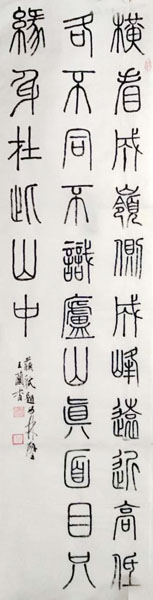 橫看成嶺側成峰遠近高低
各不同不識廬山眞面目只
緣身在此山中
蘇軾題西林壁